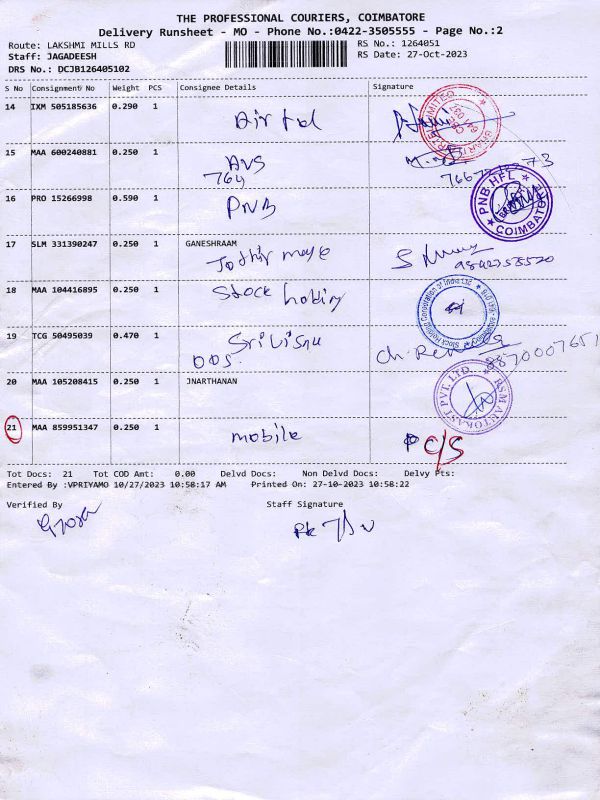 THE PROFESSIONAL COURIERS, COIMBATORE
Delivery Runsheet - MO - Phone No.:0422-3505555 - Page No.:2
Route: LAKSHMI MILLS RD
RS No.: 1264051
Staff: JAGADEESH
RS Date: 27-Oct-2023
DRS No.: DCJB126405102
S No Consignment No Weight PCS Consignee Details Signature
14 IXM 505185636 0.290 1
Airtel
15 MAA 600240881 0.250 1
AVS
764
16 PRO 15266998 0.590 1
PNB
PNB HFL
COIMBATORE
17 SLM 331390247 0.250 1 GANESHRAAM
18 MAA 104416895 0.250 1
Stock holding
Stock Holding Corporation of India Ltd
19 TCG 50495039 0.470 1
8870007651
20 MAA 105208415 0.250 1 JNARTHANAN
RSM AUTOKAST PVT. LTD.
21 MAA 859951347 0.250 1
mobile
C/S
Tot Docs: 21 Tot COD Amt: 0.00 Delvd Docs: Non Delvd Docs: Delvy Pts:
Entered By :VPRIYAMO 10/27/2023 10:58:17 AM Printed On: 27-10-2023 10:58:22
Verified By Staff Signature